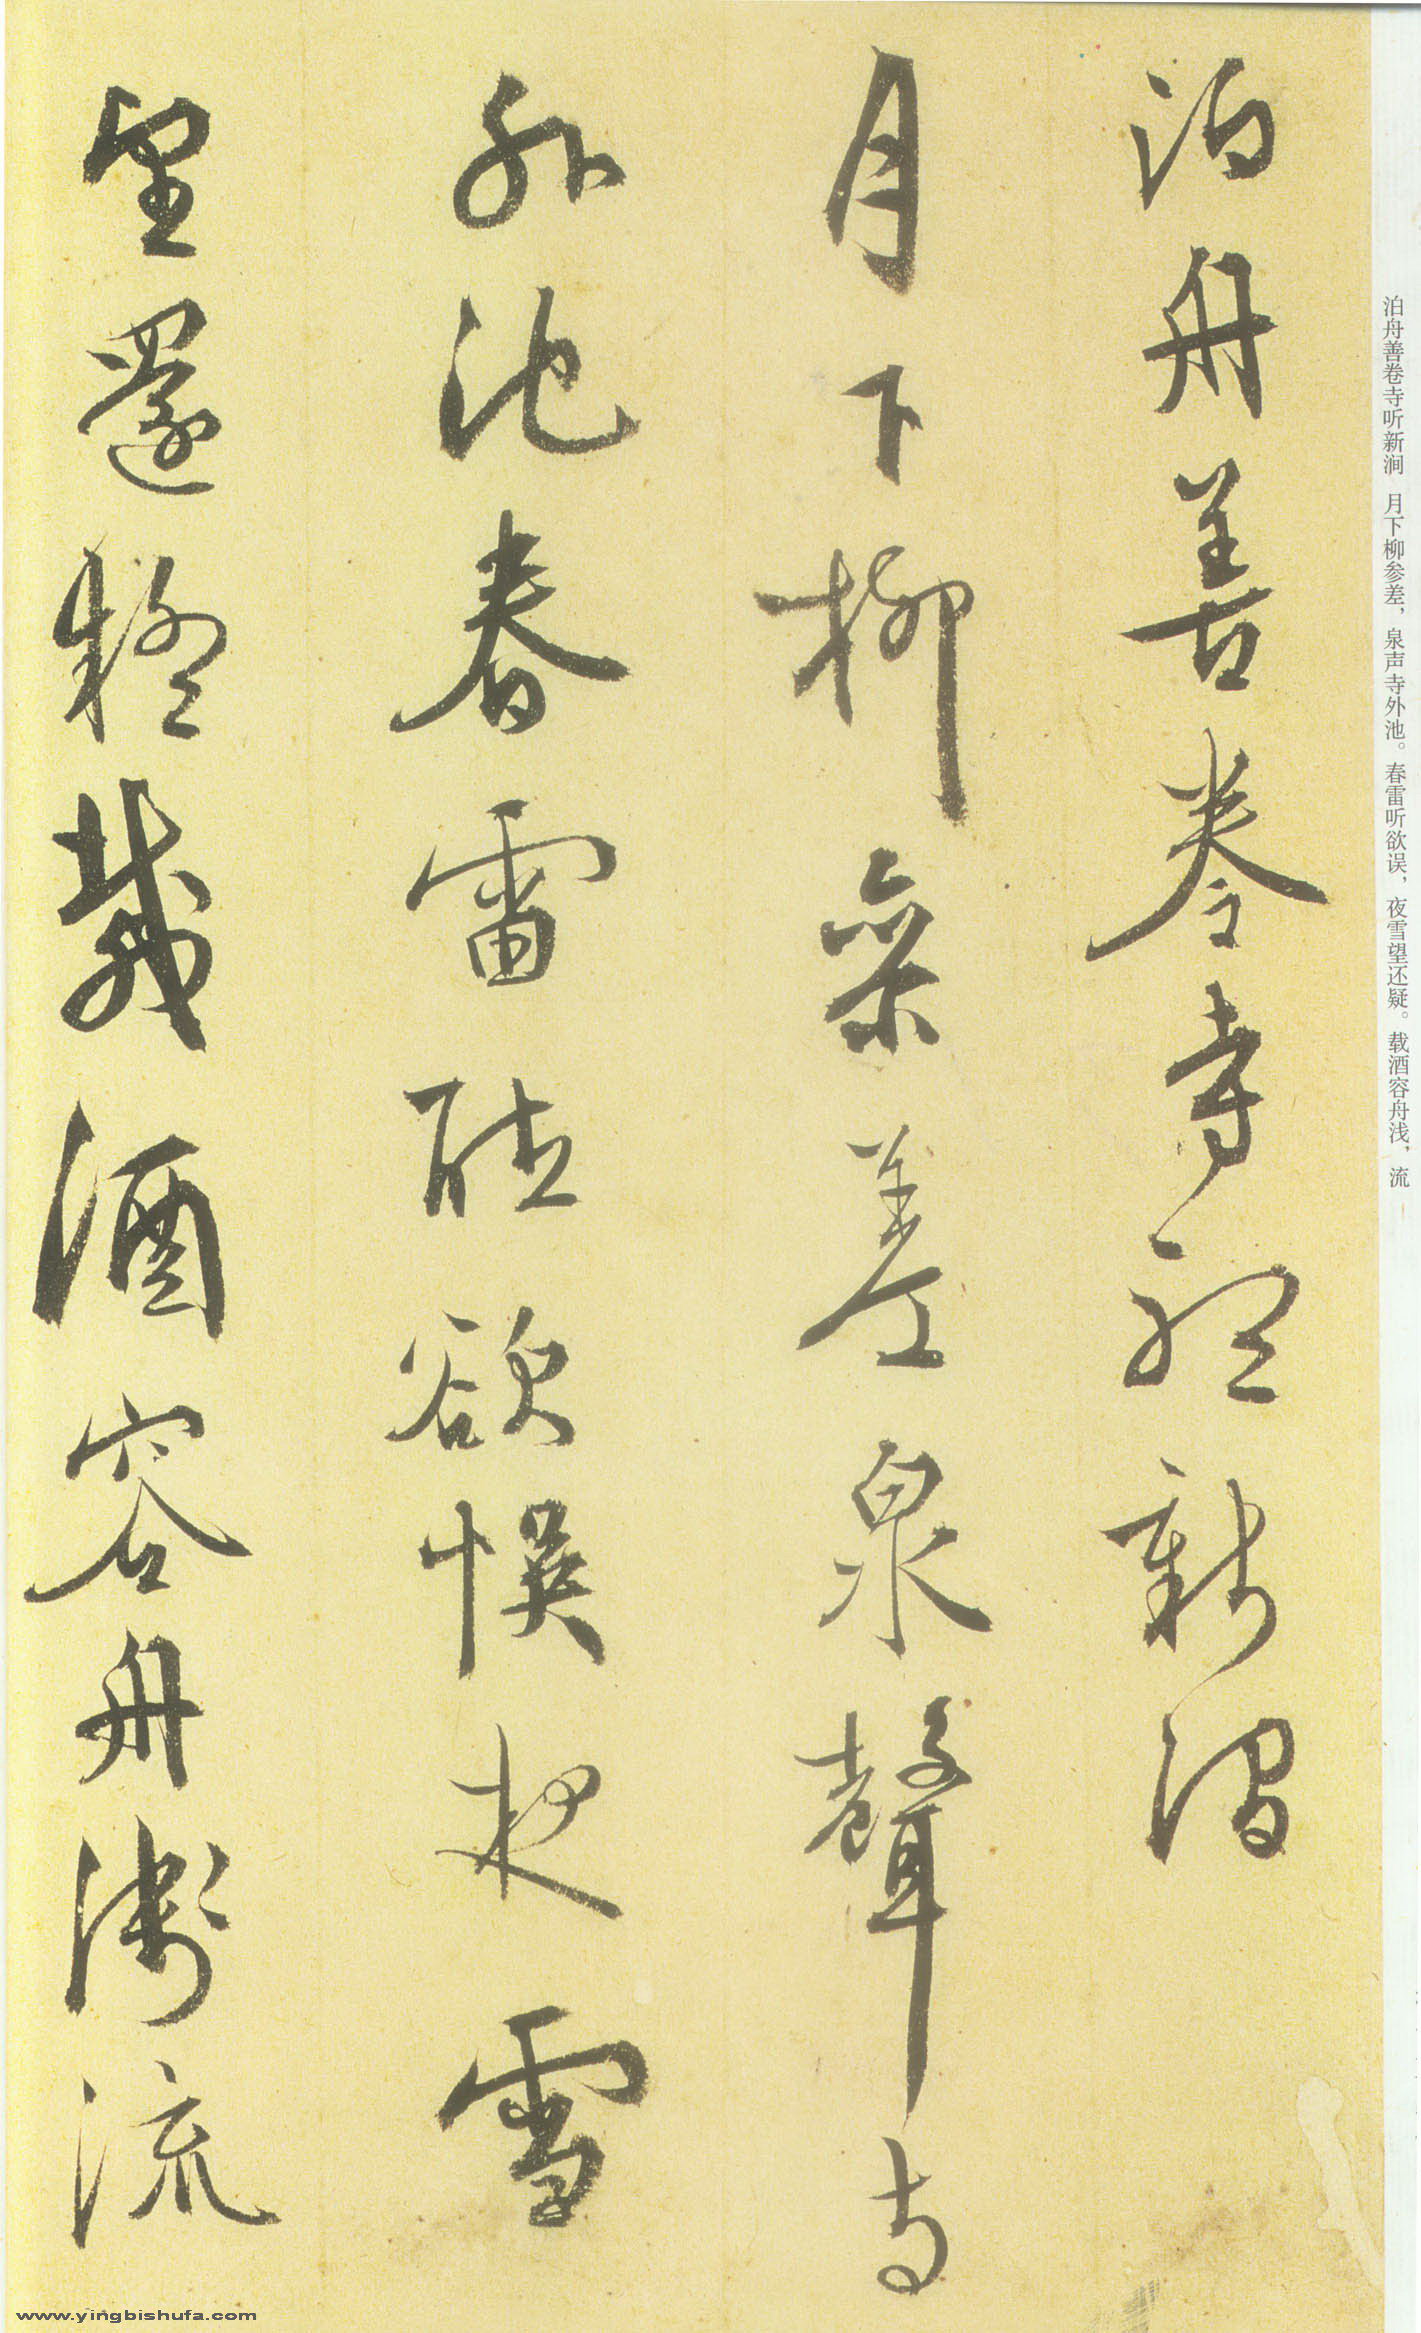 泊舟善卷寺聽新澗
月下柳參差泉聲寺
外池春雷聽欲悮夜雪
望還疑載酒容舟淺流
泊舟善卷寺听新涧　月下柳参差，泉声寺外池。春雷听欲误，夜雪望还疑。载酒容舟浅，流
www.yingbishufa.com